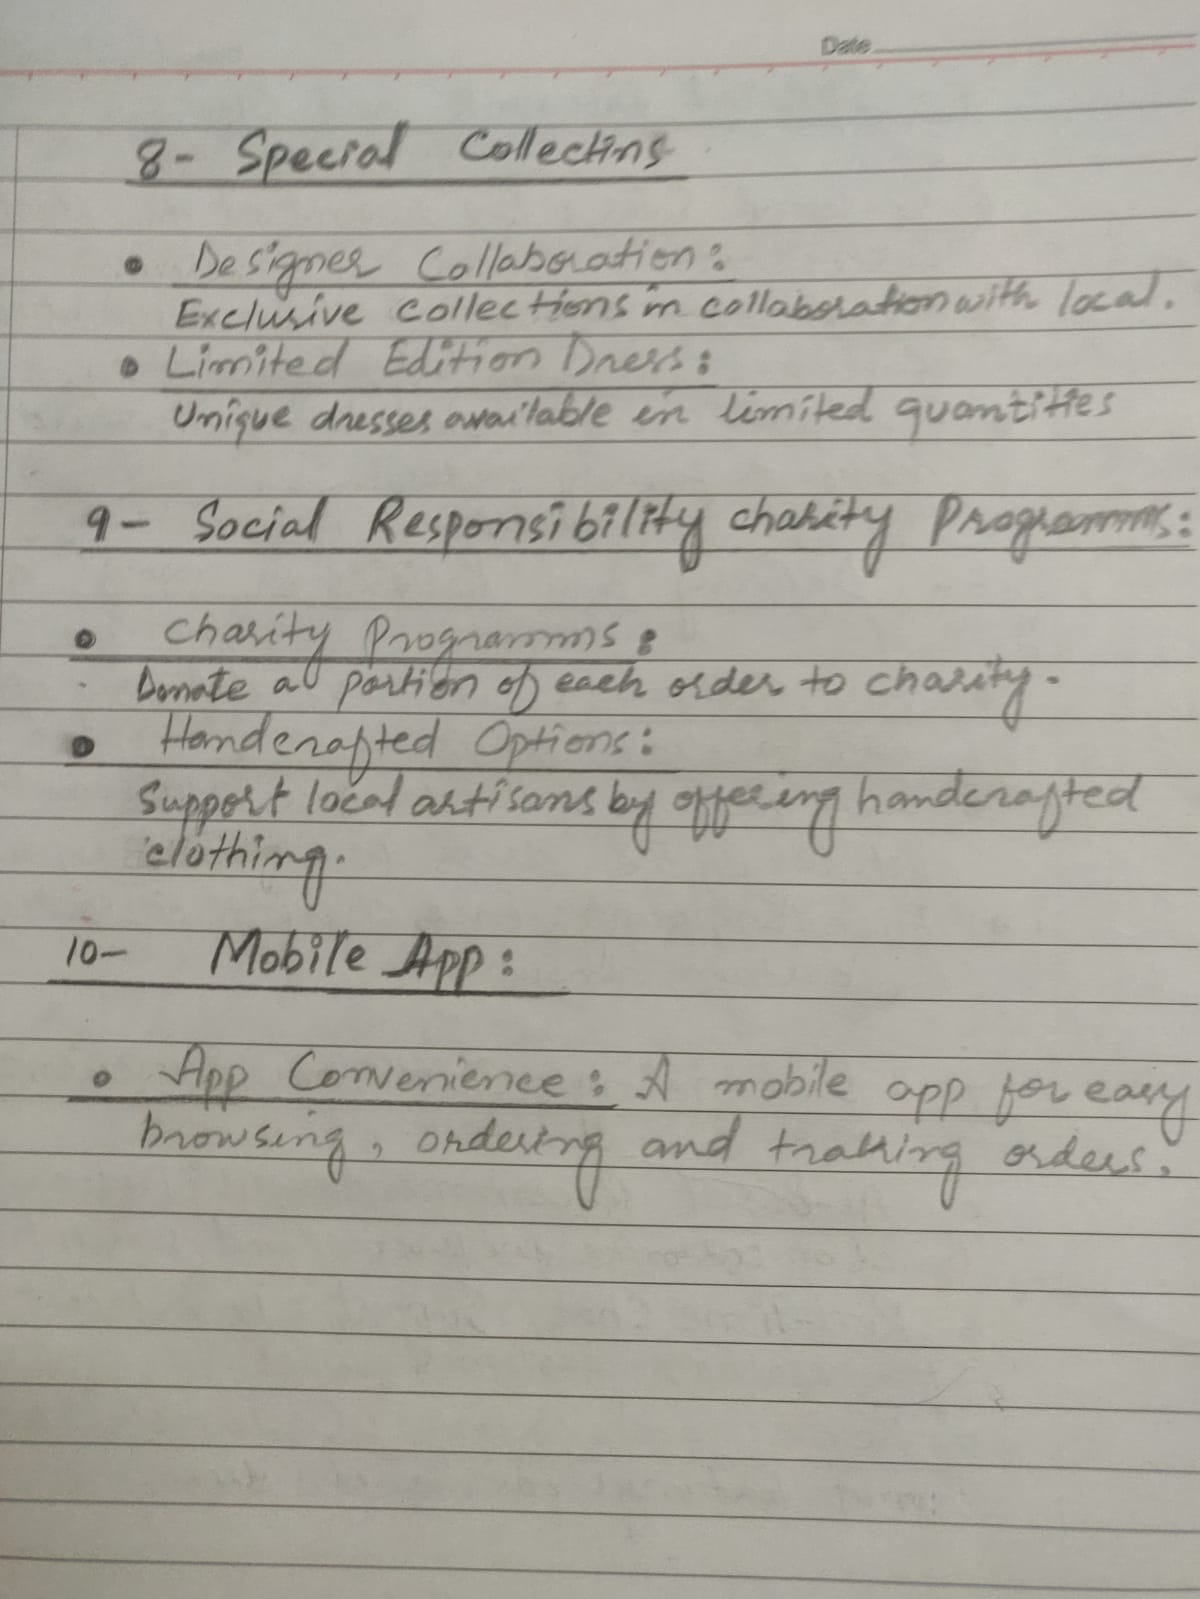 Date
8- Special Collectins
• Designer Collaboration:
Exclusive collections in collaboration with local.
• Limited Edition Dress:
Unique dresses available in limited quantities
9- Social Responsibility charity Programms:
• Charity Programms:
Donate a portion of each order to charity.
• Handcrafted Options:
Support local artisans by offering handcrafted
clothing.
10- Mobile App:
• App Convenience: A mobile app for easy
browsing, ordering and traking orders.